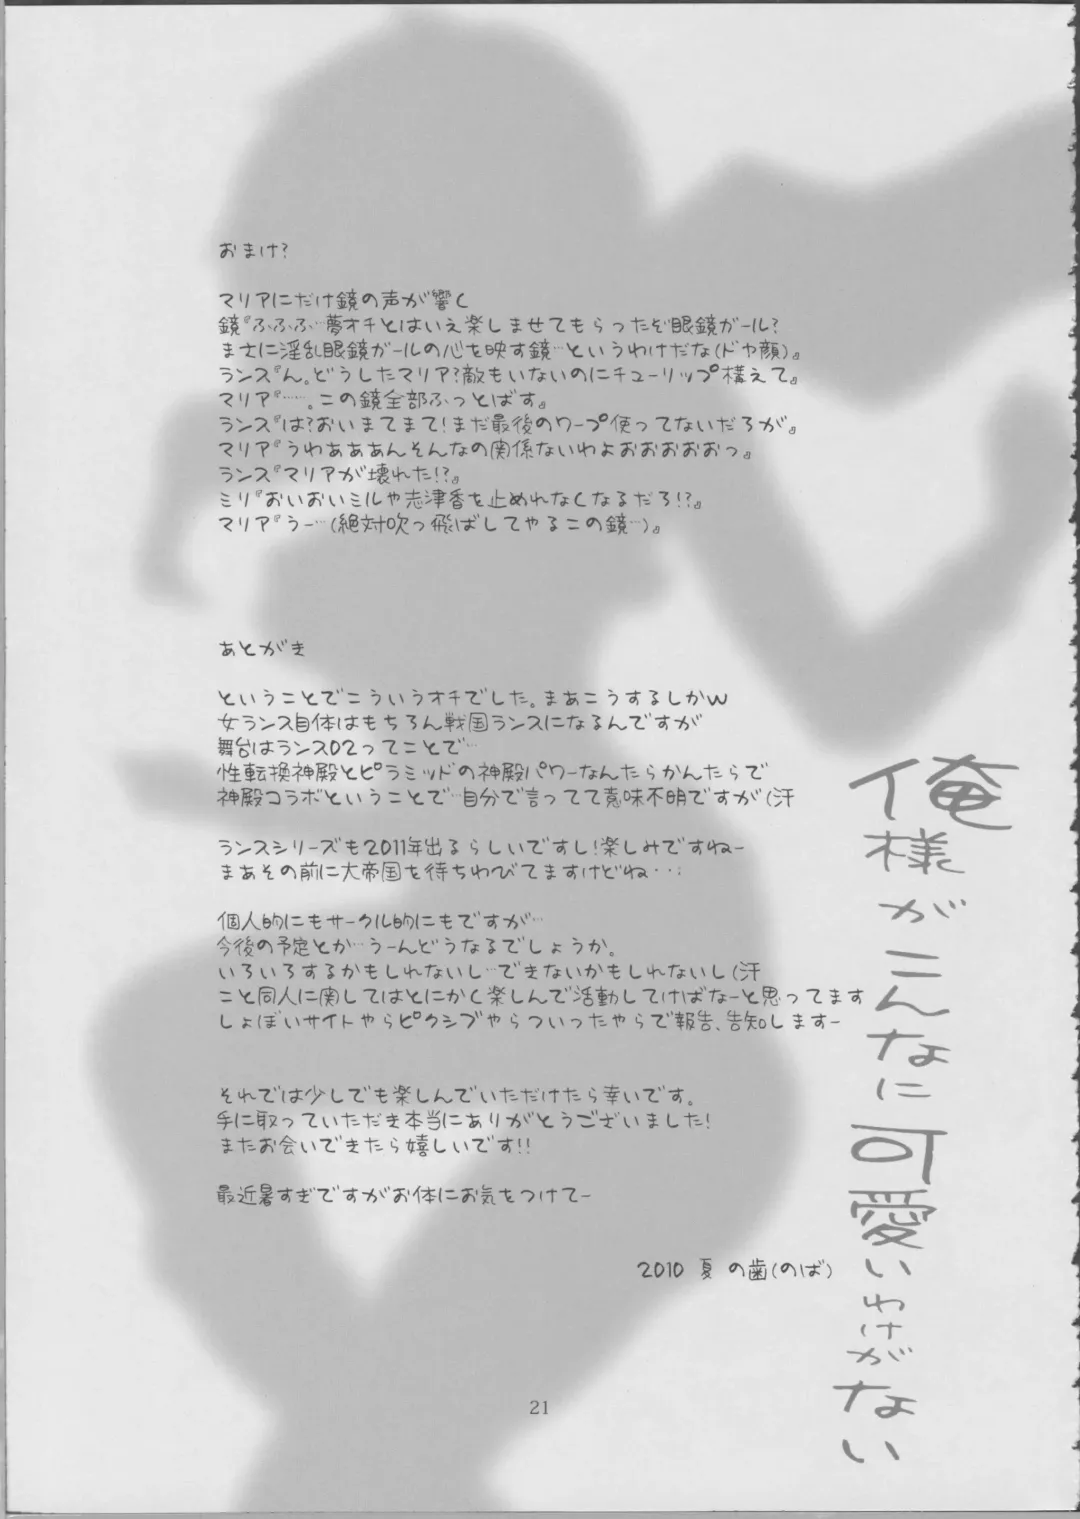 おまけ?
マリアにだけ鏡の声が響く
鏡『ふふふ…夢オチとはいえ楽しませてもらったぞ眼鏡ガール?
まさに淫乱眼鏡ガールの心を映す鏡…というわけだな(ドヤ顔)』
ランス『ん。どうしたマリア?敵もいないのにチューリップ構えて』
マリア『……。この鏡全部ふっとばす』
ランス『は?おいまてまて!まだ最後のワープ使ってないだろが』
マリア『うわあああんそんなの関係ないわよおおおおおっ』
ランス『マリアが壊れた!?』
ミリ『おいおいミルや志津香を止めれなくなるだろ!?』
マリア『うー…(絶対吹っ飛ばしてやるこの鏡…)』
あとがき
ということでこういうオチでした。まあこうするしかw
女ランス自体はもちろん戦国ランスになるんですが
舞台はランス02ってことで…
性転換神殿とピラミッドの神殿パワーなんたらかんたらで
神殿コラボということで…自分で言ってて意味不明ですが(汗
ランスシリーズも2011年出るらしいですし!楽しみですねー
まあその前に大帝国を待ちわびてますけどね・・・
個人的にもサークル的にもですが…
今後の予定とか…うーんどうなるでしょうか。
いろいろするかもしれないし…できないかもしれないし(汗
こと同人に関してはとにかく楽しんで活動してけばなーと思ってます
しょぼいサイトやらピクシブやらついったやらで報告、告知しますー
それでは少しでも楽しんでいただけたら幸いです。
手に取っていただき本当にありがとうございました!
またお会いできたら嬉しいです!!
最近暑すぎですがお体にお気をつけてー
2010 夏 の歯(のば)
俺様がこんなに可愛いわけがない
21